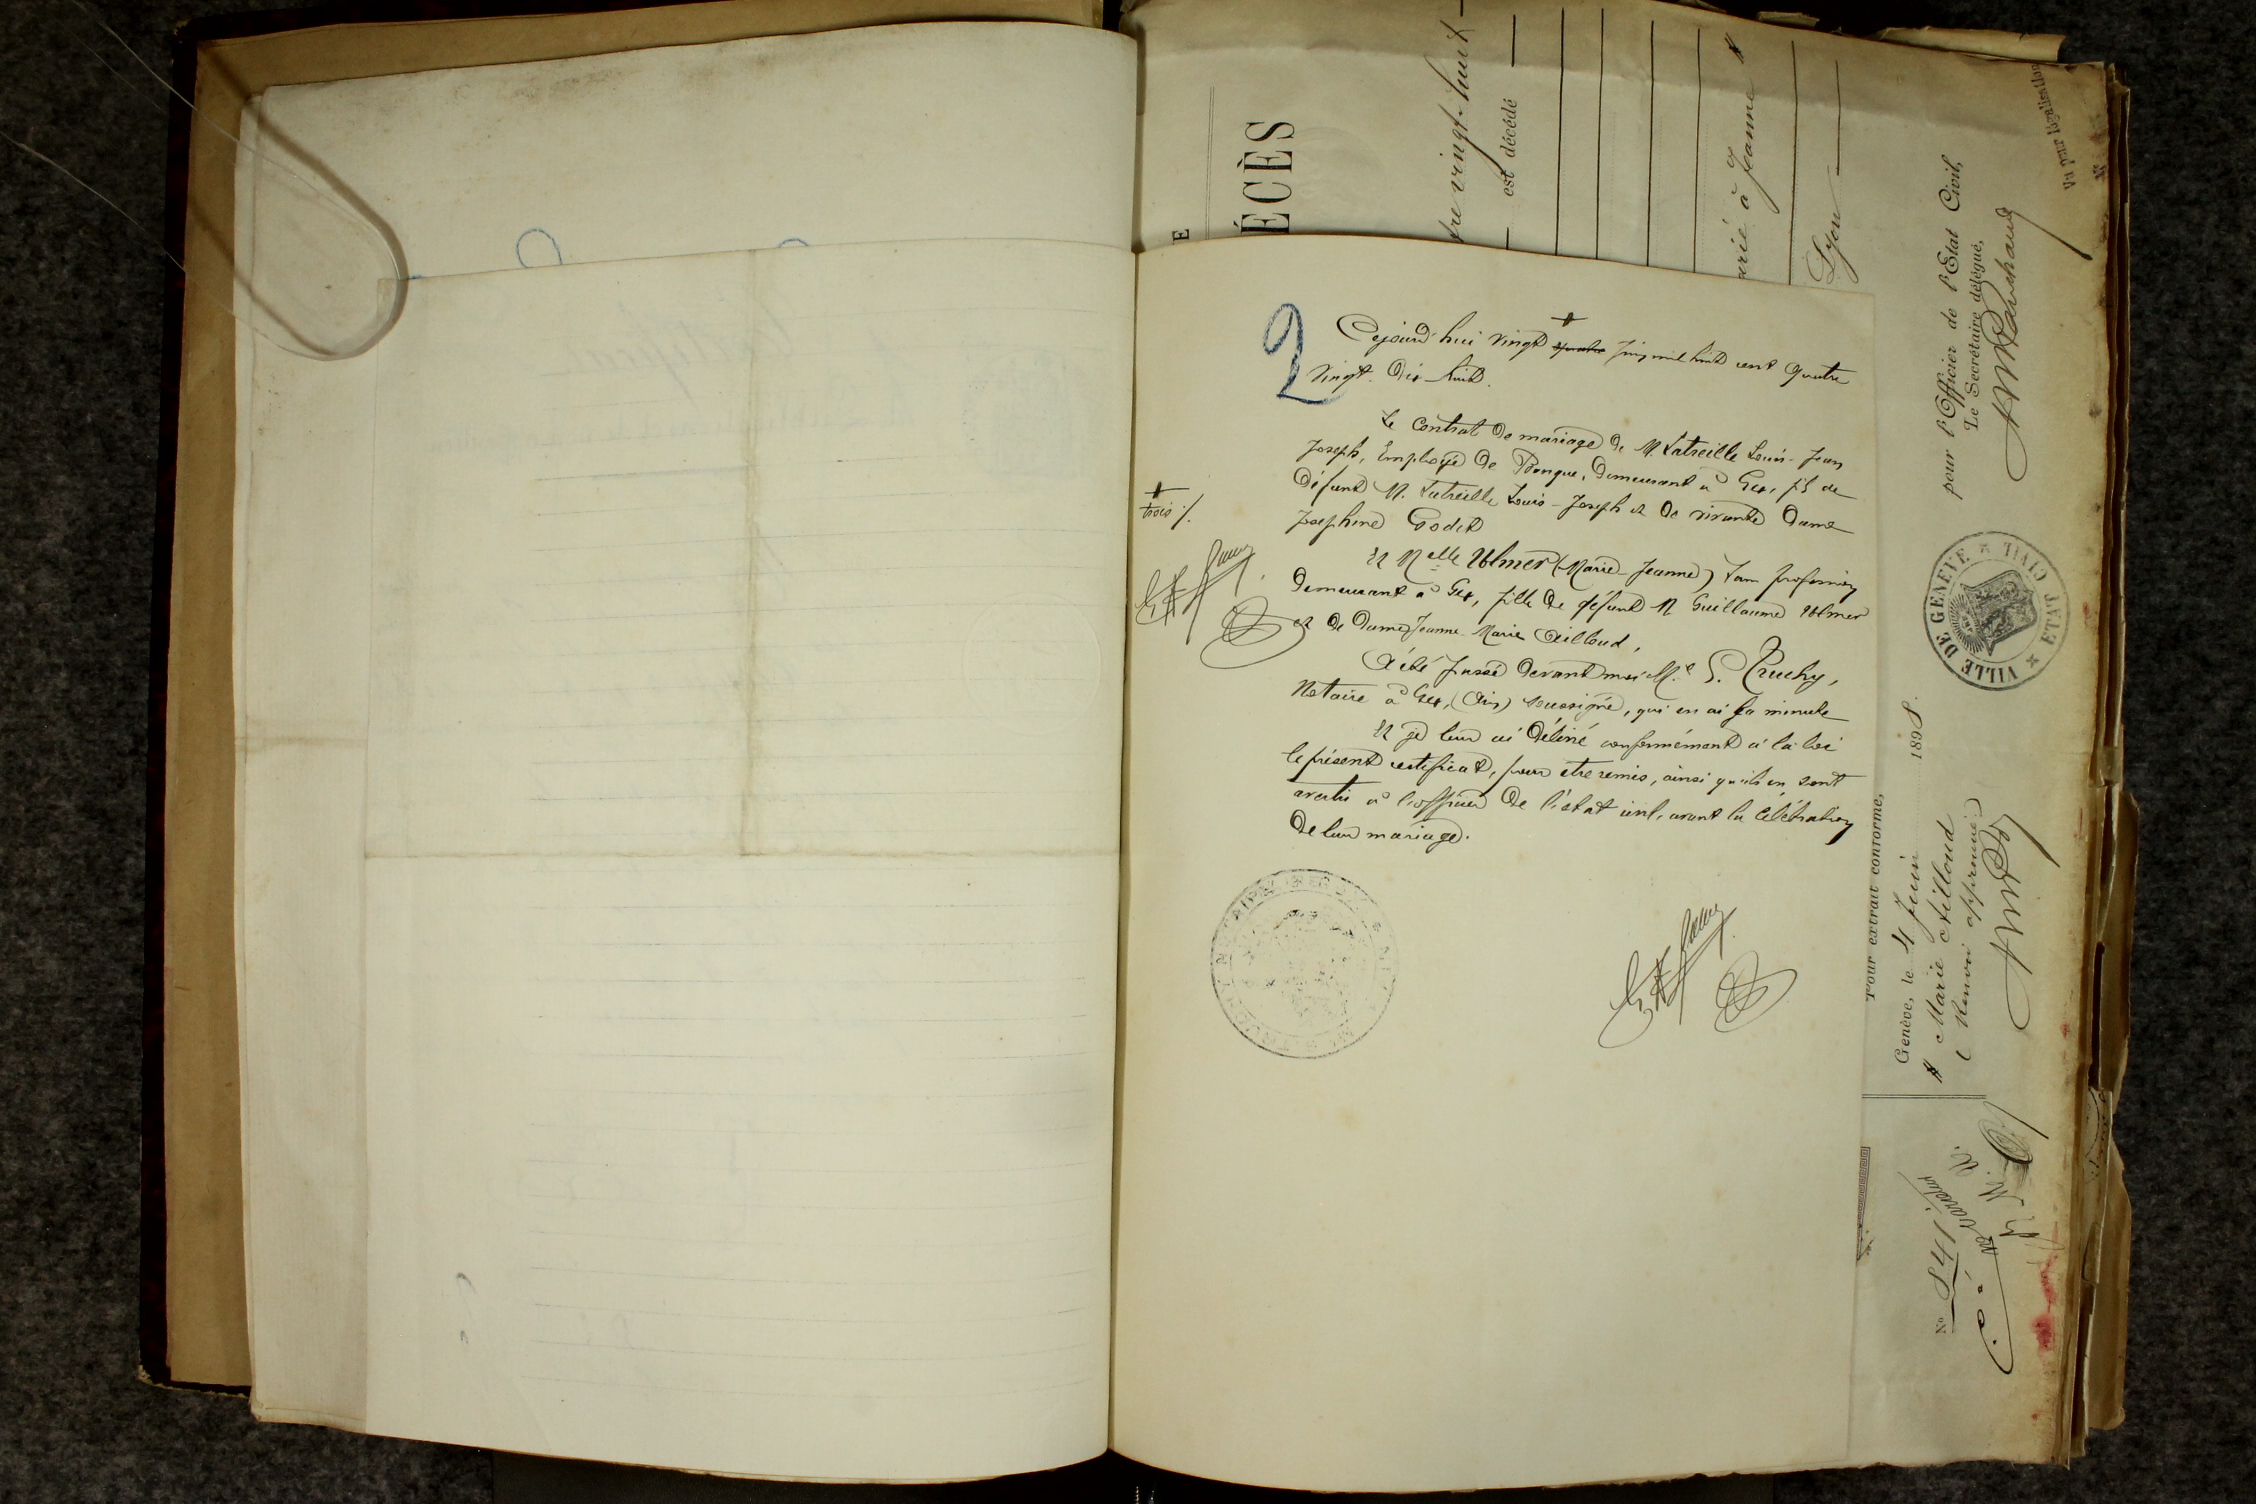 2
Cejourd'hui vingt quatre juin mil huit cent quatre
vingt dix huit.
Le contrat de mariage de M. Latreille Louis-Jean
Joseph, Employé de Banque, demeurant à Gex, fils de
défunt M. Latreille Louis-Joseph et de vivante Dame
Joséphine Godet
Et Melle Ulmer (Marie-Jeanne) sans profession
demeurant à Gex, fille de défunt M Guillaume Ulmer
et de Dame Jeanne-Marie Ailloud,
A été passé devant moi Me Truchy,
Notaire à Gex, (Ain) soussigné, qui en ai la minute
Et je leur ai délivré conformément à la loi
le présent certificat, pour être remis, ainsi qu'ils en sont
avertis à l'officier de l'état civil, avant la célébration
de leur mariage.
trois /.
E
ÉCÈS
vingt-huit
est décédé
à Jeanne #
Lyon
Pour extrait conforme,
Genève, le 4 Juin 1898.
# Marie Ailloud
Renvoi approuvé
pour l'Officier de l'État Civil,
Le Secrétaire délégué,
VILLE DE GENÈVE * ETAT CIVIL *
Vu pour légalisation
No 841